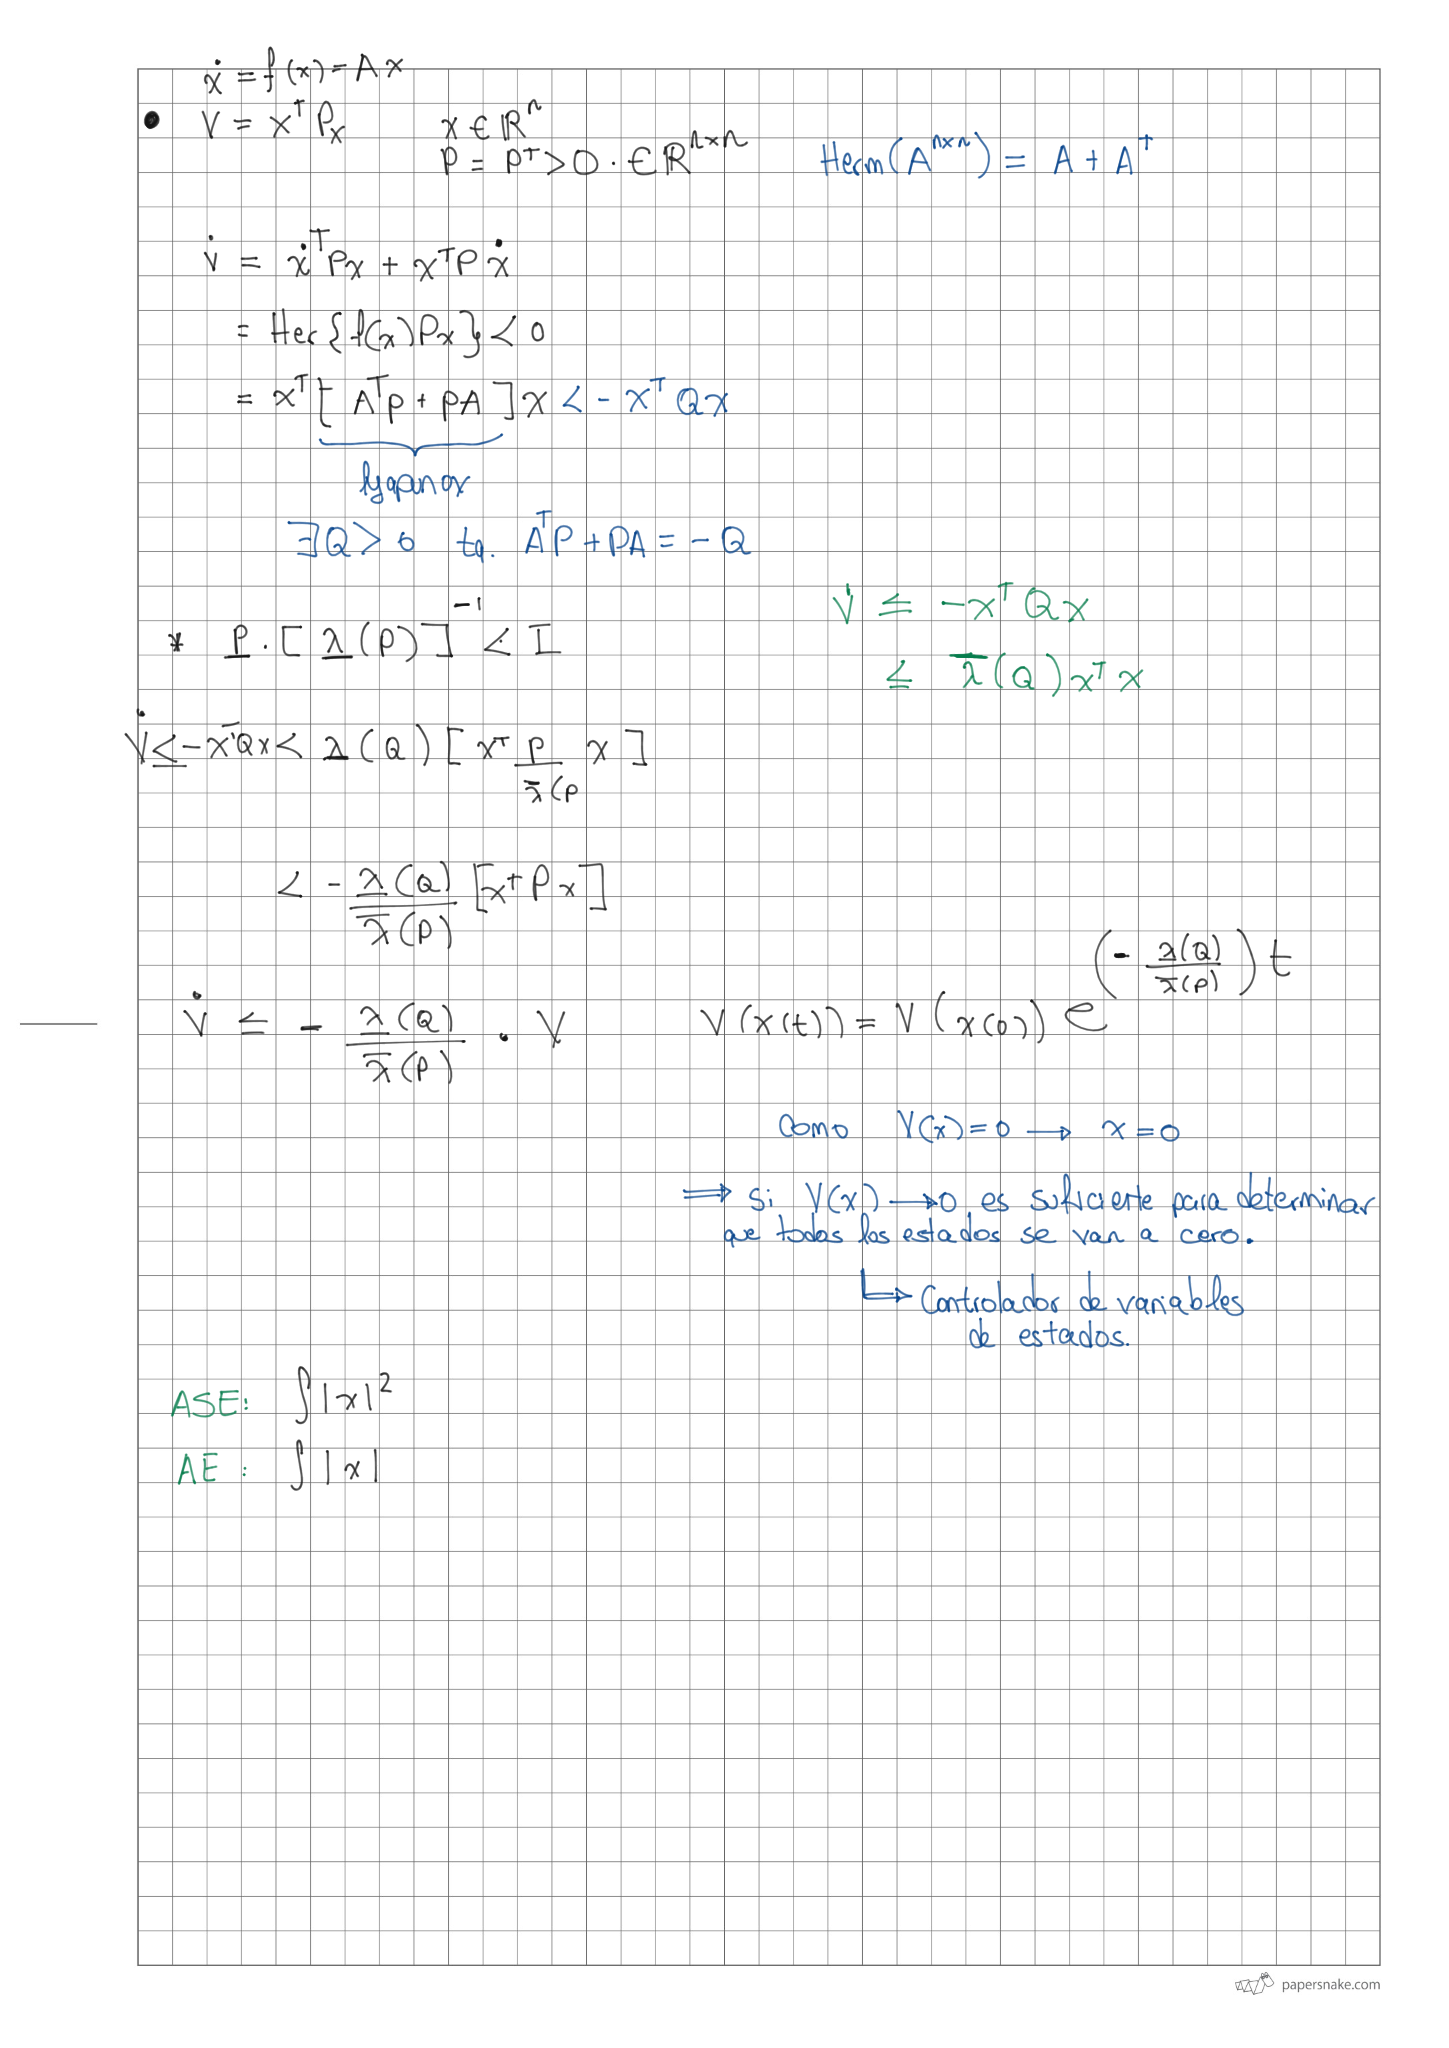 ẋ = f(x) = Ax
• V = xᵀPx x ∈ ℝⁿ
P = Pᵀ > 0 · ∈ ℝⁿˣⁿ Herm(Aⁿˣⁿ) = A + Aᵀ
V̇ = ẋᵀPx + xᵀPẋ
= Her{f(x)Px} < 0
= xᵀ[AᵀP + PA]x < -xᵀQx
lyapunov
∃Q > 0 tq. AᵀP + PA = -Q
V̇ ≤ -xᵀQx
* P̲ · [λ̲(P)]⁻¹ < I
≤ λ̄(Q)xᵀx
V̇ ≤ -xᵀQx < λ̲(Q)[xᵀ P/λ̄(P x]
< - λ̲(Q)/λ̄(P) [xᵀPx]
V̇ ≤ - λ̲(Q)/λ̄(P) · V V(x(t)) = V(x(0)) e^(- λ̲(Q)/λ̄(P))t
Como V(x) = 0 → x = 0
⟹ si V(x) → 0 es suficiente para determinar
que todos los estados se van a cero.
↳ Controlador de variables
de estados.
ASE: ∫|x|²
AE: ∫|x|
papersnake.com